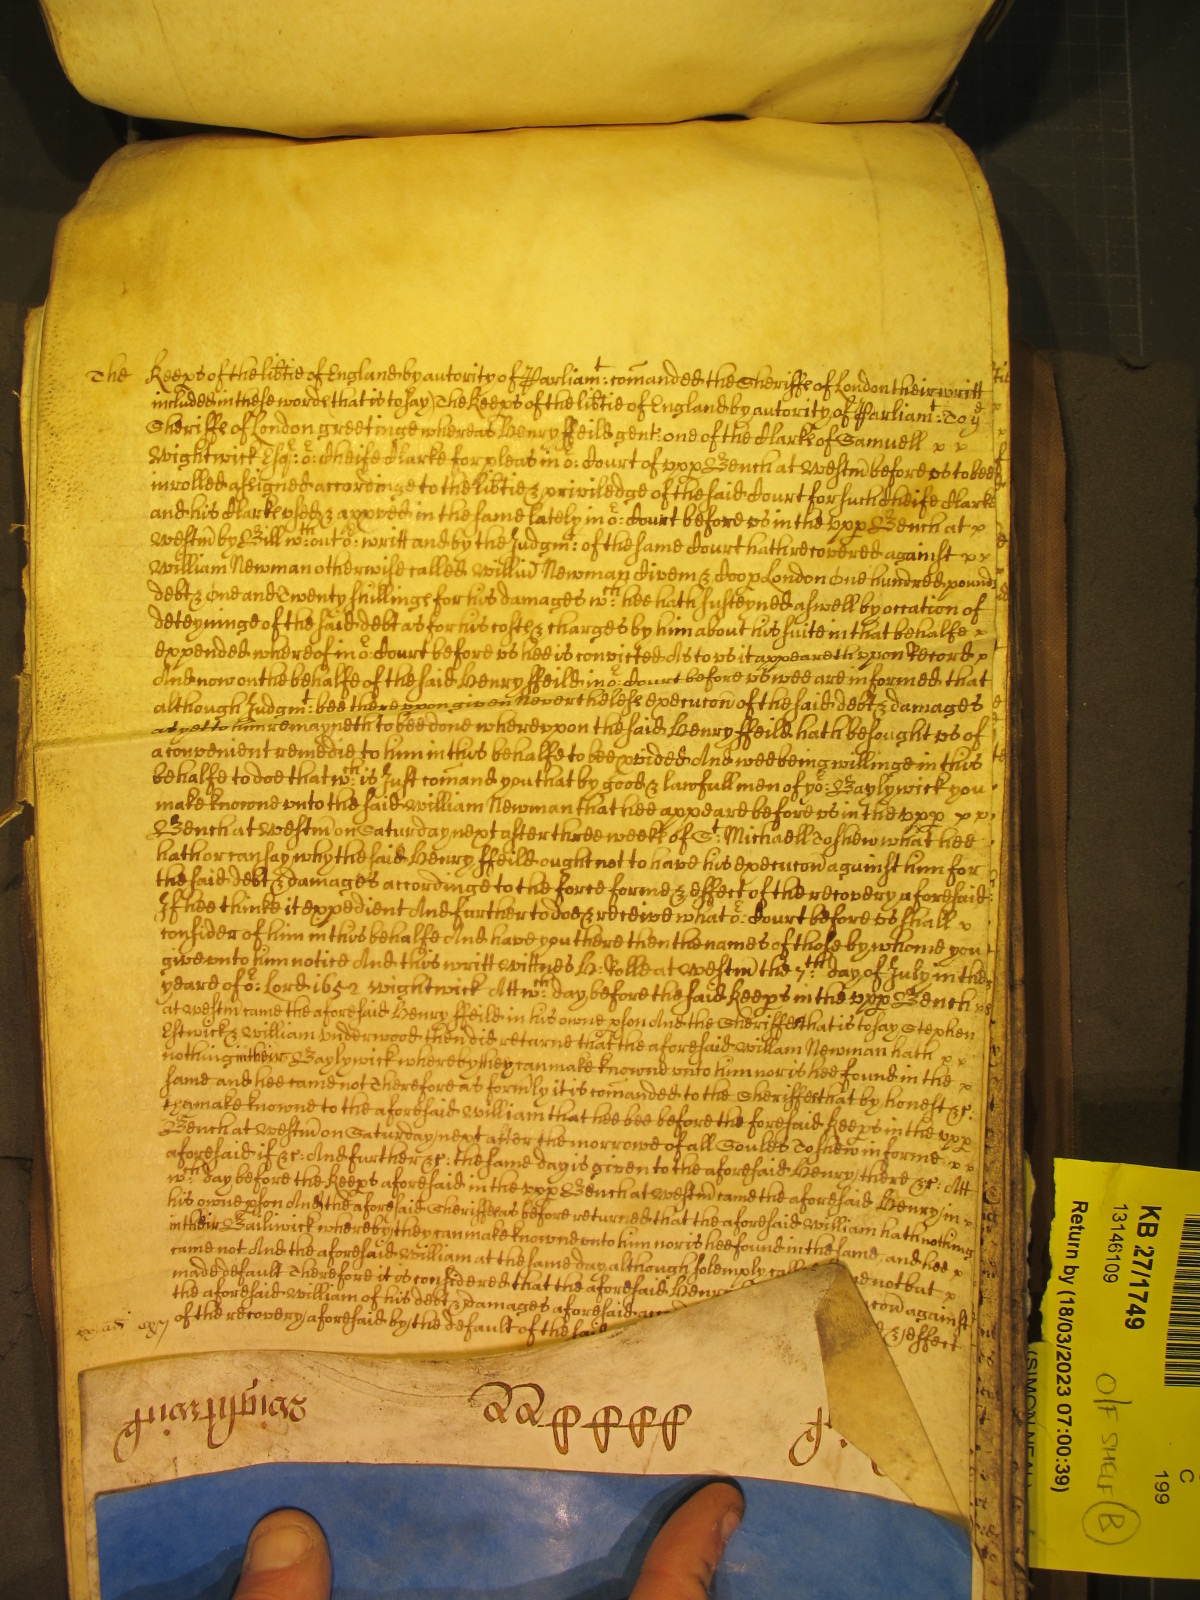 The Keeps of the libtie of England by autority of Parliamt: comanded the Sheriffe of London their writt
included in these words that is to say The Keeps of the libtie of England by autority of Parliamt: To ye
Sheriffe of London greetinge whereas Henry ffeild gent: one of the Clarks of Samuell x x
Wightwick Esqr: or: Cheife Clarke for pleas in or: Court of vpp Bench at Westm before vs to bee
inrolled assigned accordinge to the libties & priviledge of the said Court for such cheife Clarke
and his Clarks vsed & appved in the same lately in or: Court before vs in the vpp Bench at x
Westm by Bill wth:out or: writt and by the Judgmt: of the same Court hath recovered against x x
William Newman otherwise called Willm Newman Civem & Coop London One hundred pounds
debt & One and Twenty shillings for his damages wch: hee hath susteyned aswell by occation of
deteyninge of the said debt as for his costs & charges by him about his suite in that behalfe x
expended whereof in or: Court before vs hee is convicted As to vs it appeareth vpon Record x
And now on the behalfe of the said Henry ffeild in or: Court before vs wee are informed that
although Judgmt: bee thereupon given Nevertheless execucon of the said debt & damages
as yet to him remayneth to bee done whereupon the said Henry ffeild hath besought vs of
a convenient remedie to him in this behalfe to bee pvided And wee being willinge in this
behalfe to doe that wch: is Just comand you that by good & lawfull men of yor: Baylywick you
make knowne vnto the said William Newman that hee appeare before vs in the vpp x x
Bench at Westm on Saturday next after three weeks of St: Michaell To shew what hee
hath or can say why the said Henry ffeild ought not to have his execucon against him for
the said debt & damages accordinge to the force forme & effect of the recovery aforesaid
If hee thinke it expedient And further to doe & receive what or: Court before vs shall x
consider of him in this behalfe And have you there then the names of those by whome you
give vnto him notice And this writt wittnes H: Rolle at Westm the 7th: day of July in the
yeare of or: Lord 1652 Wightwick Att wch: day before the said Keeps in the vpp Bench
at Westm came the aforesaid Henry ffeild in his owne pson And the Sheriffes that is to say Stephen
Estwick & William Underwood then did returne that the aforesaid William Newman hath x x
nothing in their Baylywick whereby they can make knowne vnto him nor is hee found in the x
same and hee came not Therefore as formly it is comanded to the Sheriffes that by honest &c.
they make knowne to the aforesaid William that hee bee before the foresaid Keeps in the vpp
Bench at Westm on Saturday next after the morrowe of all Soules To shew in forme x x
aforesaid if &c. And further &c: the same day is given to the aforesaid Henry there &c: Att
wch: day before the Keeps aforesaid in the vpp Bench at Westm came the aforesaid Henry in x
his owne pson And the aforesaid Sheriffes as before returned that the aforesaid William hath nothing
in their Bailiwick whereby they can make knowne vnto him nor is hee found in the same and hee x
came not And the aforesaid William at the same day although solemply call ed not but x
made default Therefore it is considered that the aforesaid Henry con against
the aforesaid William of his debt & damages aforesaid & effect
of the recovery aforesaid by the default of the said
Wightwick
KB 27/1749
13146109
Return by (18/03/2023 07:00:39)
(SIMON NEAL)
C
199
O/F SHELF B